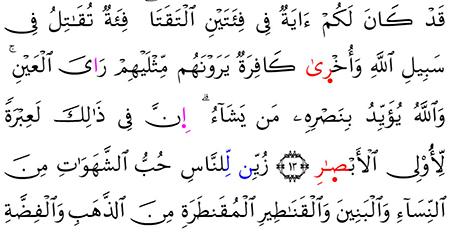 قَدْ كَانَ لَكُمْ ءَايَةٌ فِى فِئَتَيْنِ ٱلْتَقَتَا ۖ فِئَةٌ تُقَٰتِلُ فِى
سَبِيلِ ٱللَّهِ وَأُخْرِىٰ كَافِرَةٌ يَرَوْنَهُم مِّثْلَيْهِمْ رَاىَ ٱلْعَيْنِ ۚ
وَٱللَّهُ يُؤَيِّدُ بِنَصْرِهِۦ مَن يَشَآءُ ۗ اِنَّ فِى ذَٰلِكَ لَعِبْرَةً
لِّأُو۟لِى ٱلْأَبْصَٰرِ ١٣ زُيِّن لِّلنَّاسِ حُبُّ ٱلشَّهَوَٰتِ مِنَ
ٱلنِّسَآءِ وَٱلْبَنِينَ وَٱلْقَنَٰطِيرِ ٱلْمُقَنطَرَةِ مِنَ ٱلذَّهَبِ وَٱلْفِضَّةِ